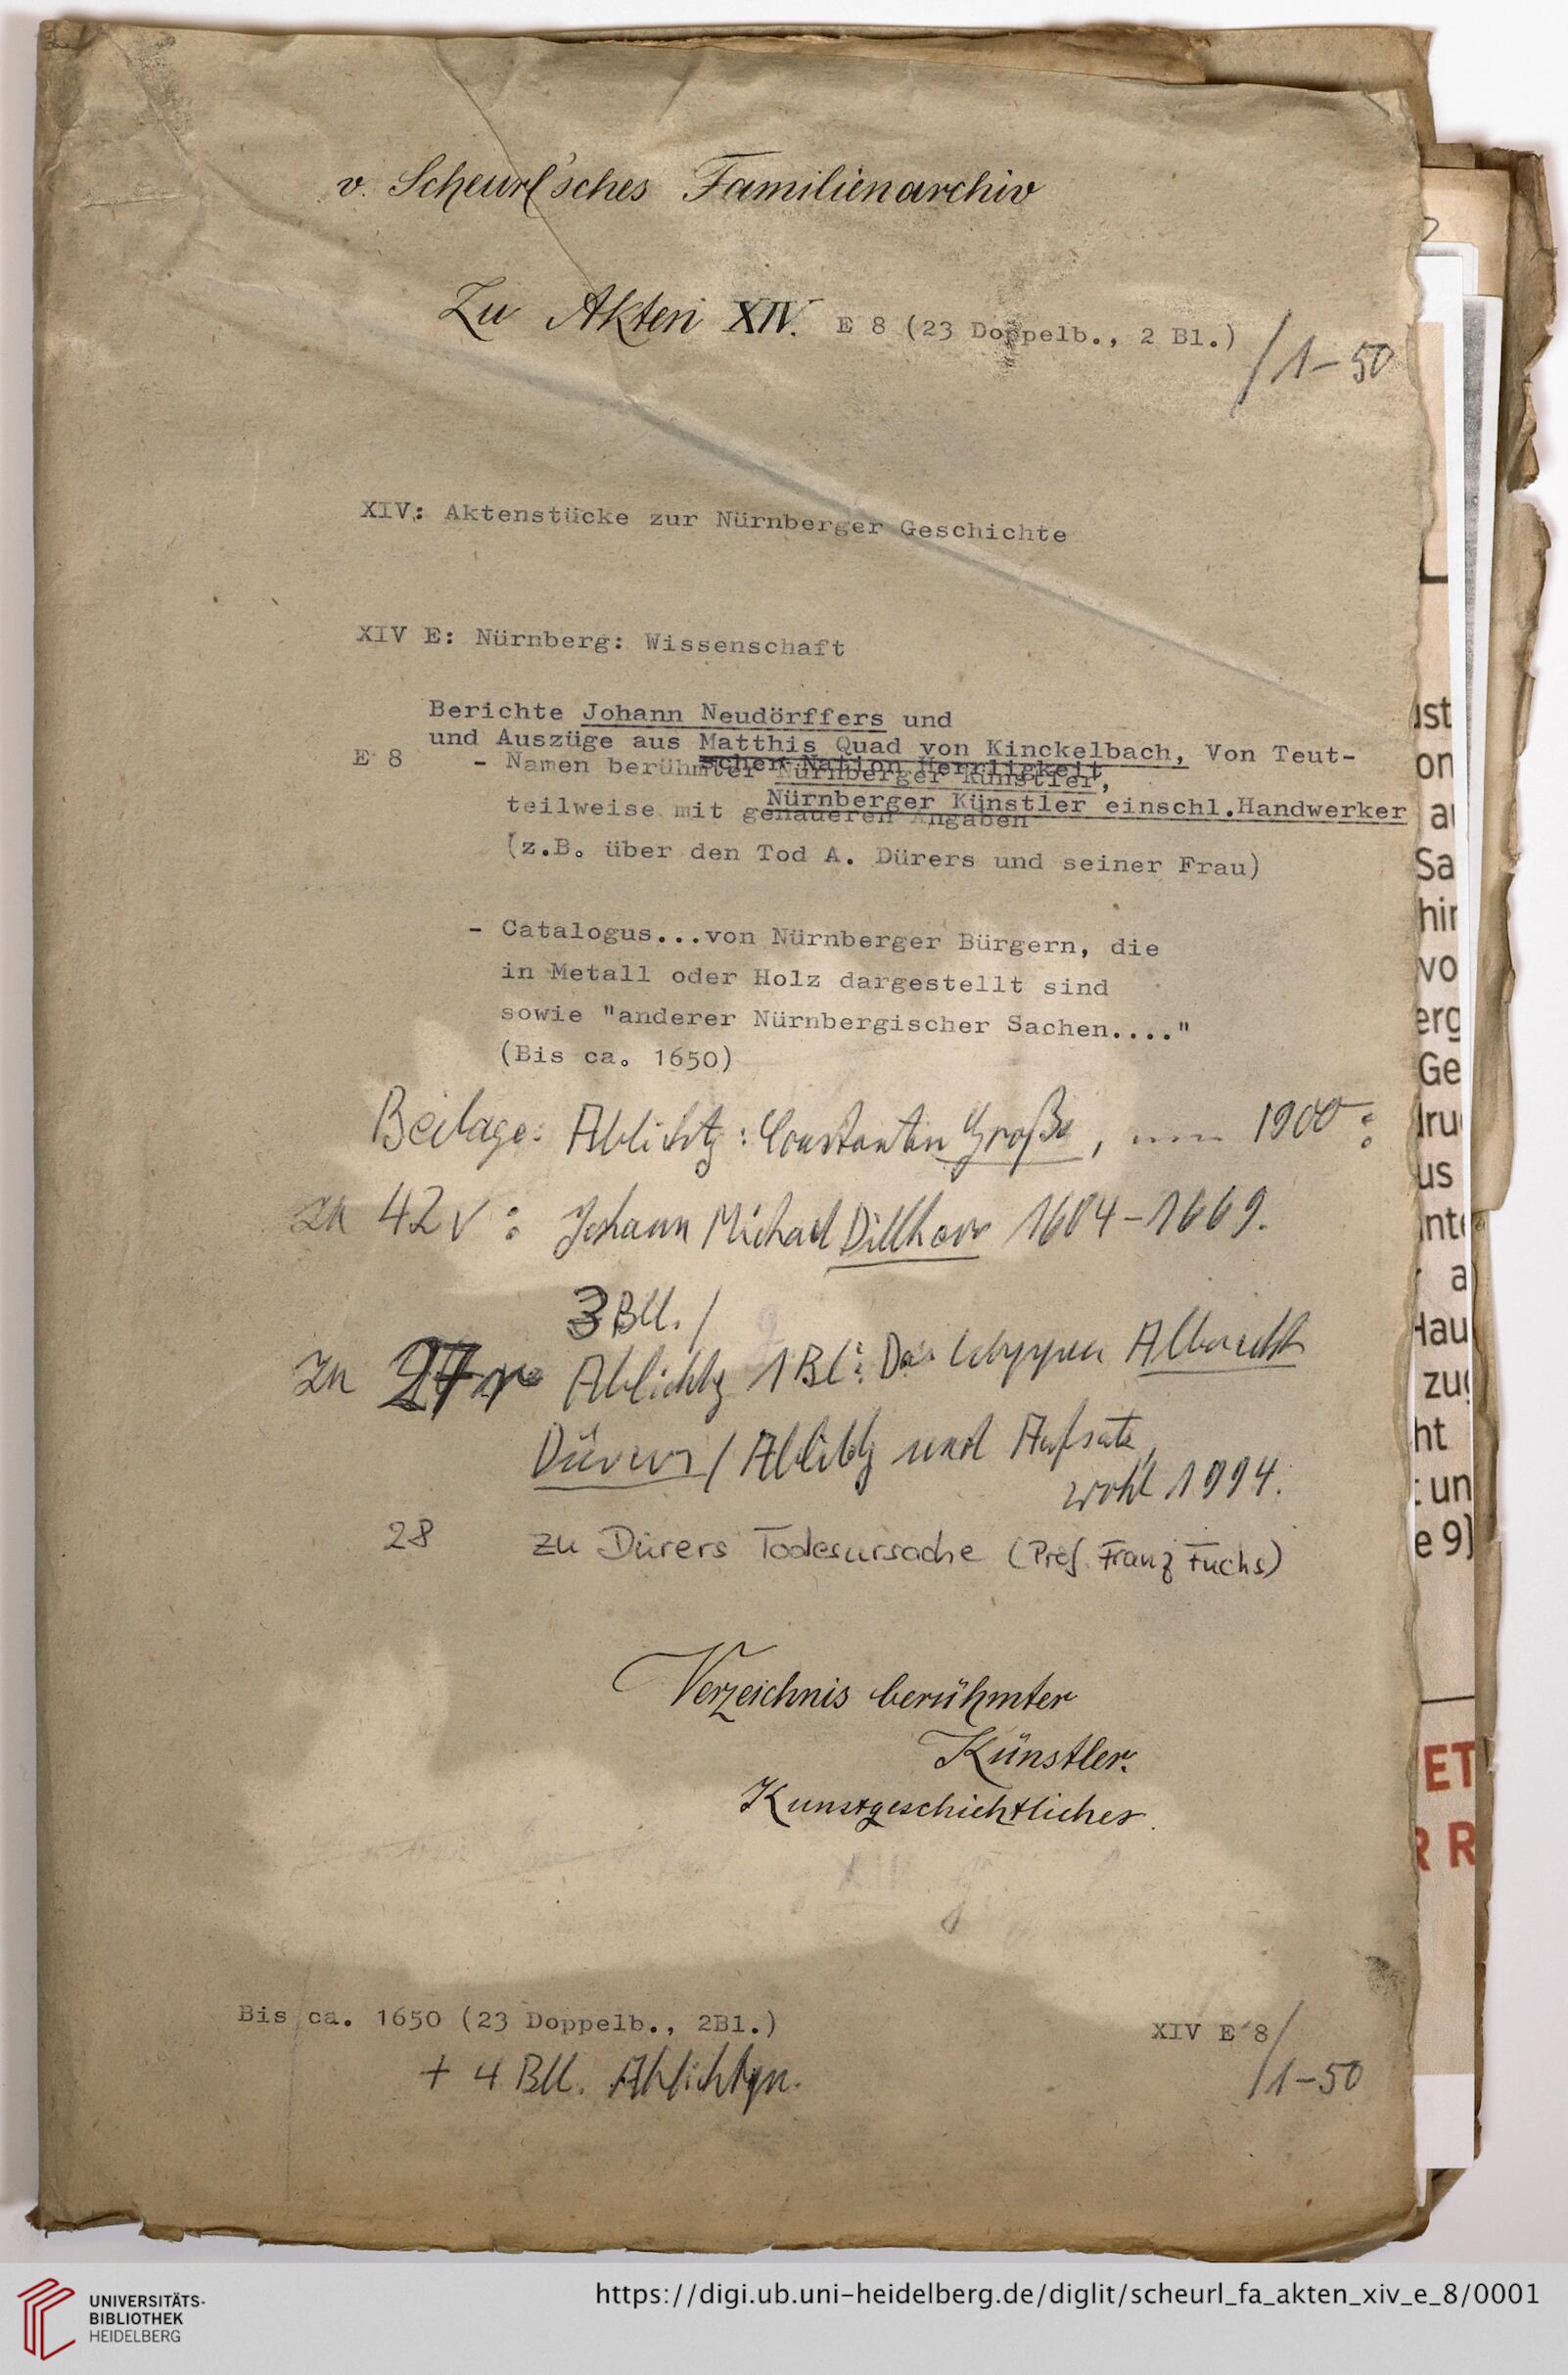 v. Scheurl'sches Familienarchiv
Zu Akten XIV. E 8 (23 Doppelb., 2 Bl.)
/1-50
XIV: Aktenstücke zur Nürnberger Geschichte
XIV E: Nürnberg: Wissenschaft
Berichte Johann Neudörffers und
und Auszüge aus Matthis Quad von Kinckelbach, Von Teut-
schen Nation Herrligkeit
E 8 - Namen berühmter Nürnberger Künstler,
Nürnberger Künstler einschl.Handwerker
teilweise mit genaueren Angaben
(z.B. über den Tod A. Dürers und seiner Frau)
- Catalogus...von Nürnberger Bürgern, die
in Metall oder Holz dargestellt sind
sowie "anderer Nürnbergischer Sachen...."
(Bis ca. 1650)
Beilage: Ablichtg: Constantin Große, um 1900:
zu 42v: Johann Michael Dillherr 1604-1669.
3 Bll. /
zu 27r Ablichtg 1 Bl: Das Wappen Albrecht
Dürers / Ablichtg und Aufsatz,
wohl 1994.
28 zu Dürers Todesursache (Prof. Franz Fuchs)
Verzeichnis berühmter
Künstler.
Kunstgeschichtliches.
Bis ca. 1650 (23 Doppelb., 2Bl.)
XIV E 8/
+ 4 Bll. Ablichtgn.
/1-50
ist
on
Sa
hin
vo
erg
Ge
dru
us
a
Hau
zu
ht
un
e 9)
ET
R R
UNIVERSITÄTS-
BIBLIOTHEK
HEIDELBERG
https://digi.ub.uni-heidelberg.de/diglit/scheurl_fa_akten_xiv_e_8/0001